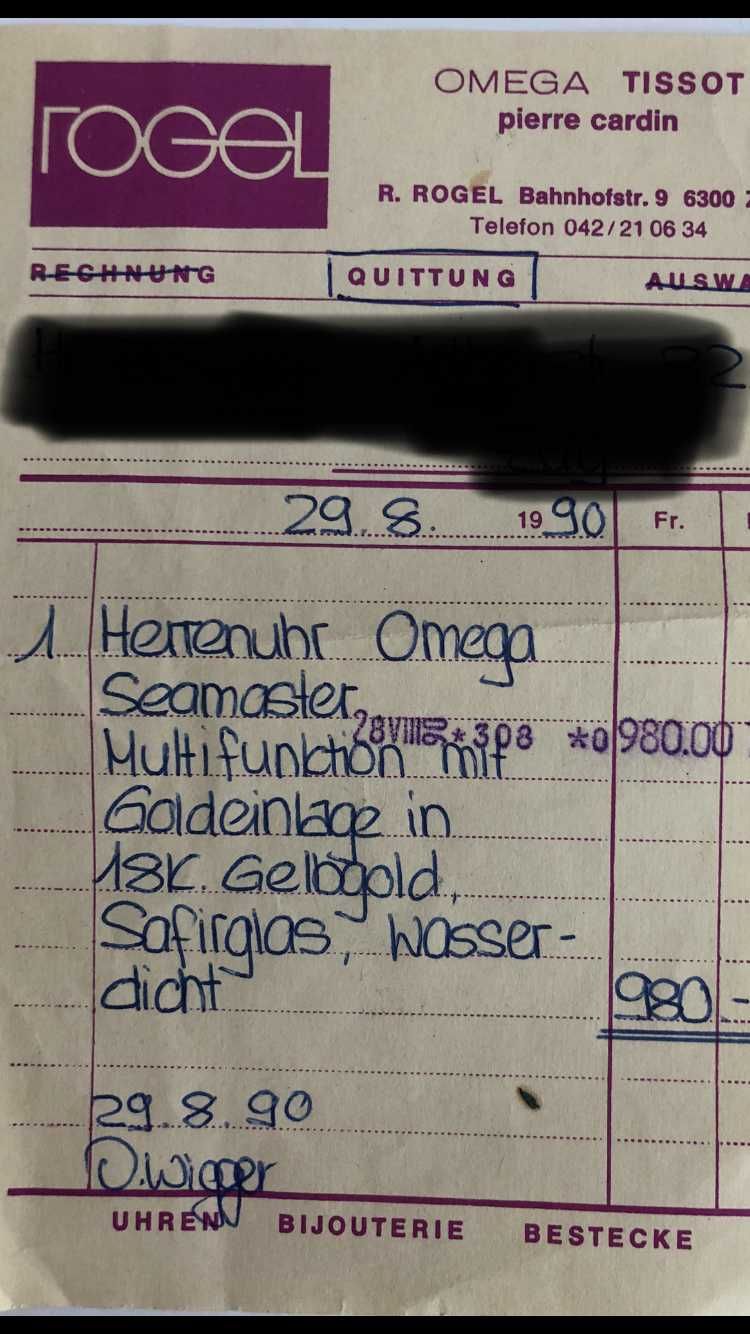 rogel
OMEGA TISSOT
pierre cardin
R. ROGEL Bahnhofstr. 9 6300
Telefon 042/21 06 34
RECHNUNG QUITTUNG AUSWA
29. 8. 1990 Fr.
1 Herrenuhr Omega
Seamaster,
28 VIII 90 *308 *0 980.00
Multifunktion mit
Goldeinlage in
18K. Gelbgold,
Safirglas, Wasser-
dicht 980 -
29.8.90
O. Wigger
UHREN BIJOUTERIE BESTECKE